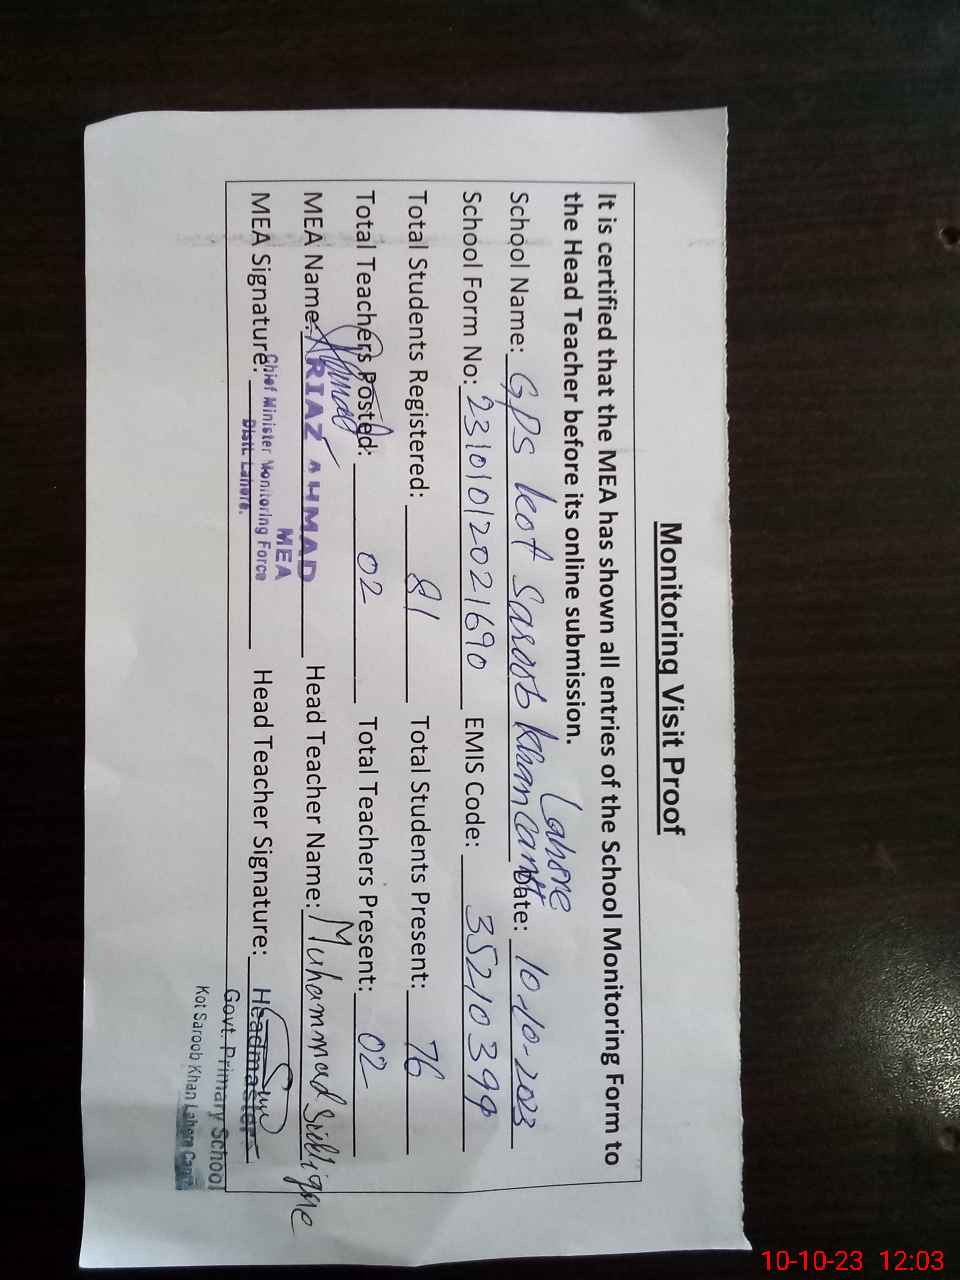 Monitoring Visit Proof
It is certified that the MEA has shown all entries of the School Monitoring Form to
the Head Teacher before its online submission.
Lahore
School Name: GPS kot Saroob Khan Cantt Date: 10-10-2023
School Form No: 23101012021690 EMIS Code: 35210399
Total Students Registered: 81 Total Students Present: 76
Total Teachers Posted: 02 Total Teachers Present: 02
MEA Name: RIAZ AHMAD Head Teacher Name: Muhammad Siddique
MEA
MEA Signature: Head Teacher Signature:
Chief Minister Monitoring Force
Distt. Lahore.
Headmaster
Govt. Primary School
Kot Saroob Khan Lahore Cantt
10-10-23 12:03